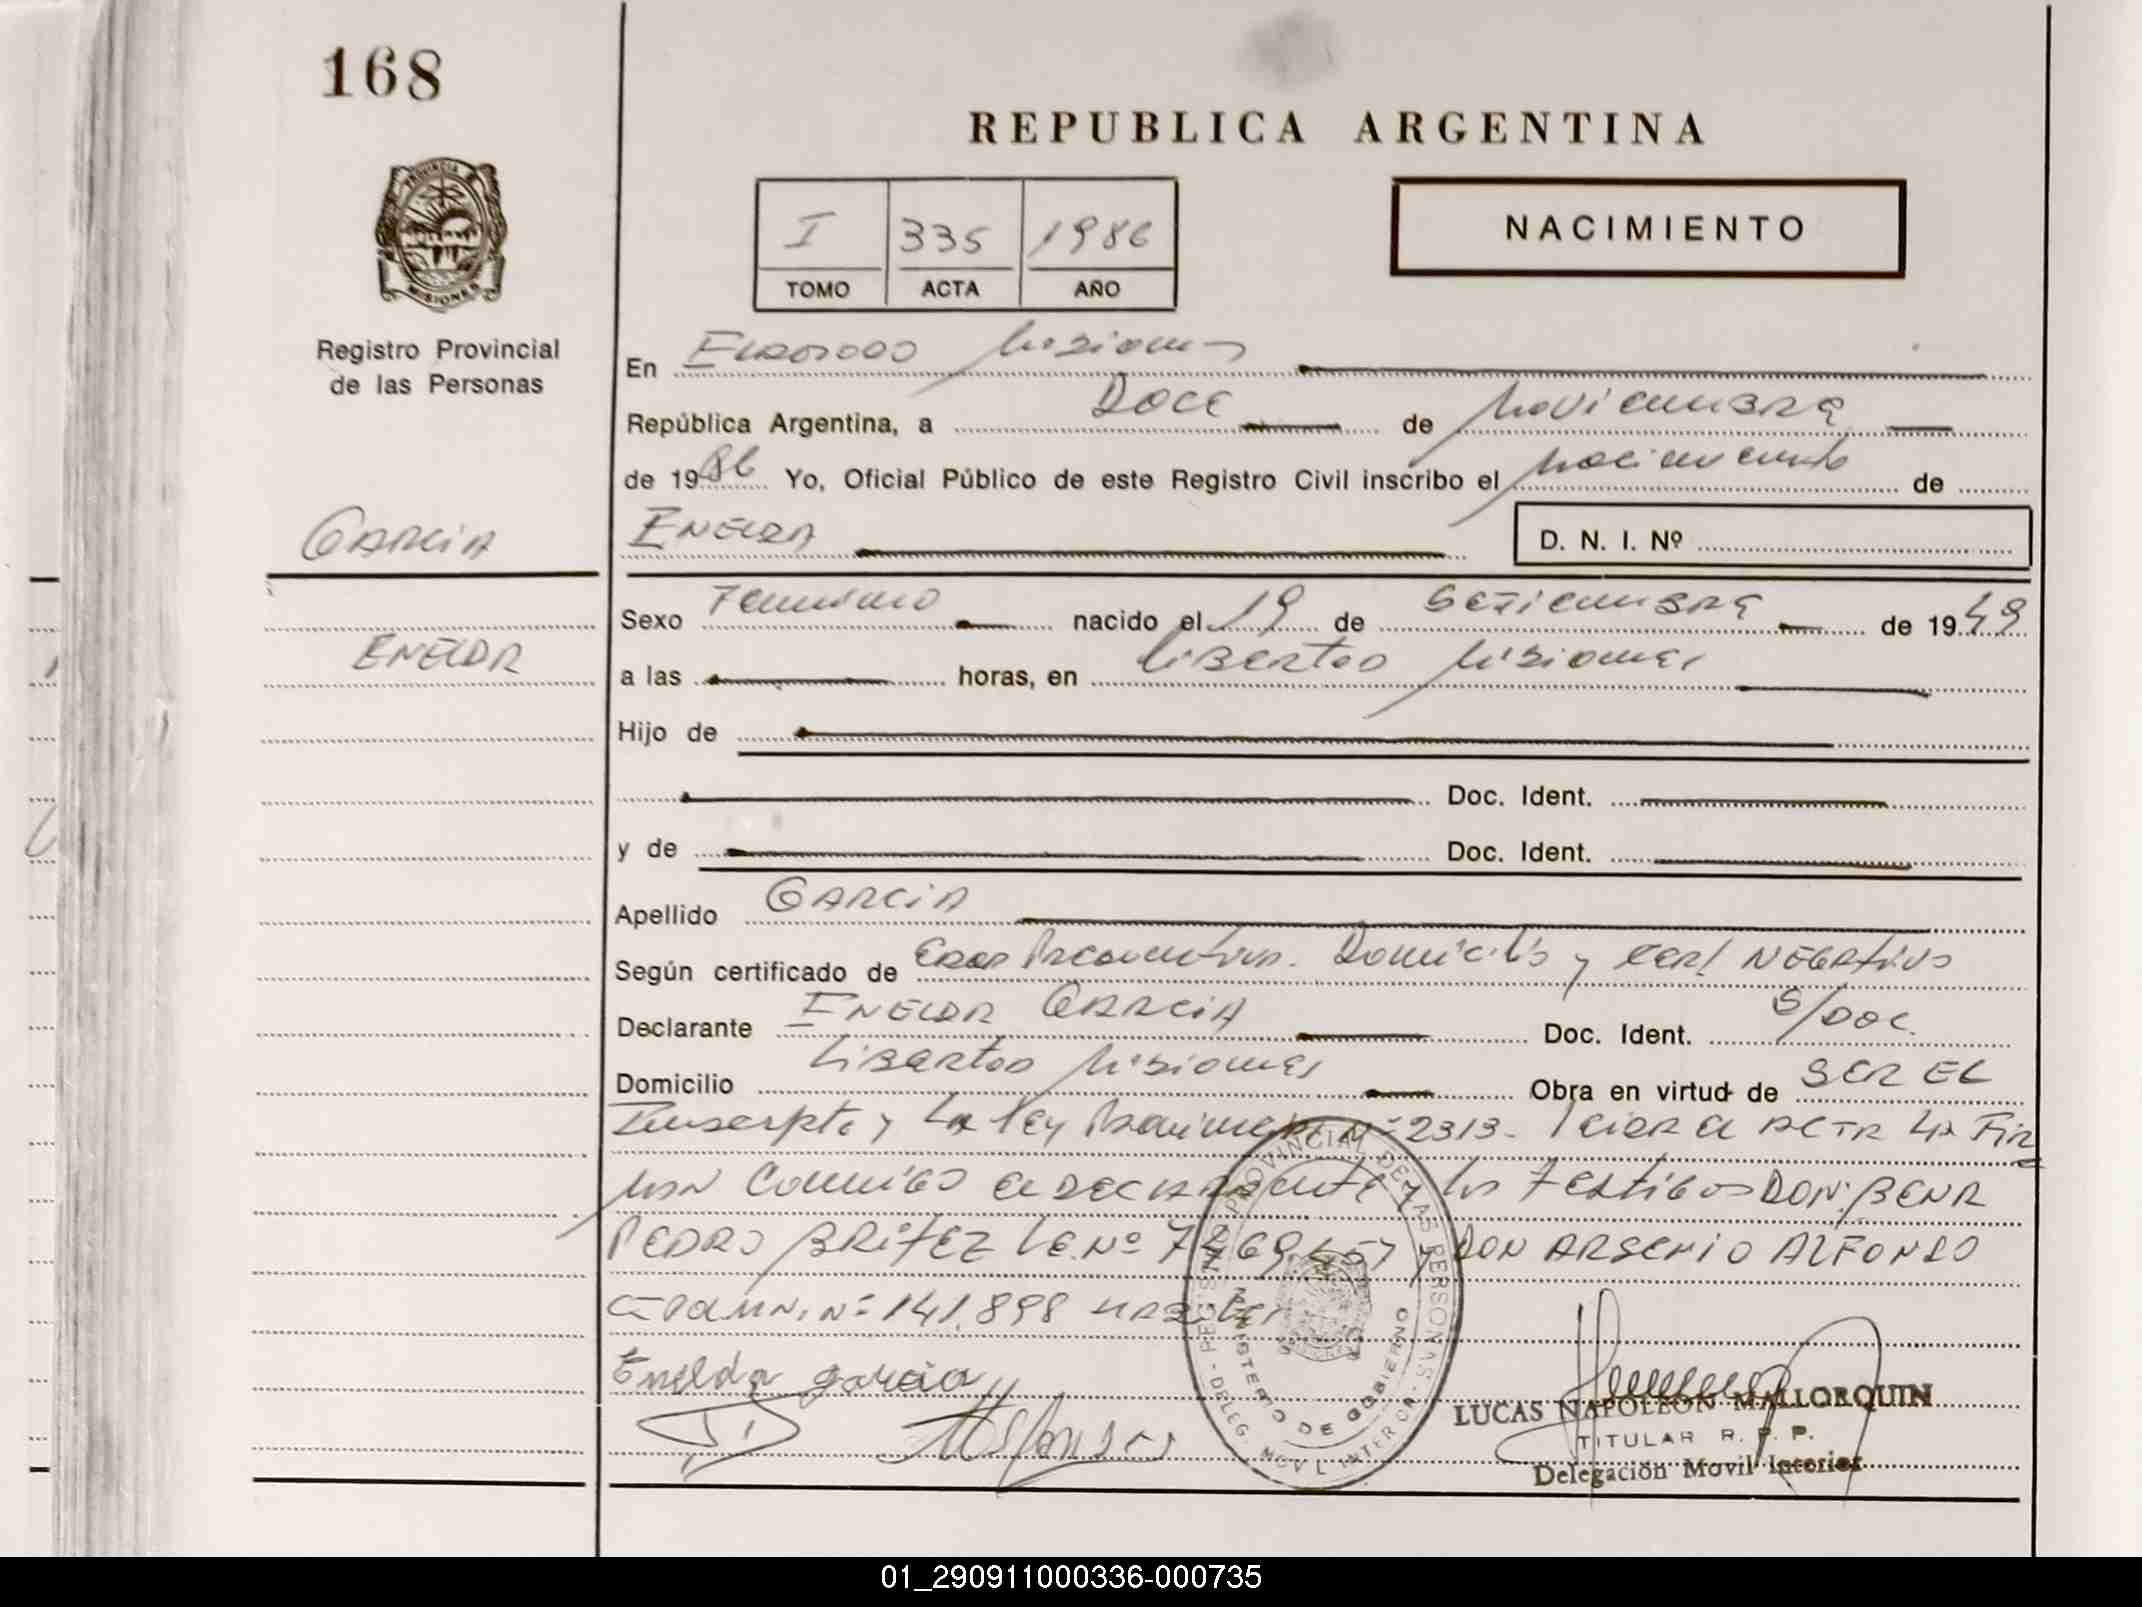 168
REPUBLICA ARGENTINA
NACIMIENTO
I 335 1986
TOMO ACTA AÑO
PROVINCIA DE
MISIONES
Registro Provincial
de las Personas
En ELDORADO Misiones
República Argentina, a Doce de Noviembre
de 1986 Yo, Oficial Público de este Registro Civil inscribo el Nacimiento de
GARCIA
ENELDA
D. N. I. Nº
Sexo Femenino nacido el 19 de Setiembre de 1949
ENELDA
a las horas, en Libertad Misiones
Hijo de
Doc. Ident.
y de Doc. Ident.
Apellido GARCIA
Según certificado de Edad Domicilio y Cert NEGATIVO
Declarante ENELDA GARCIA Doc. Ident. S/DOC.
Domicilio Libertad Misiones Obra en virtud de SER EL
Inscripto y La Ley Nº 2313- Leida el ACTA LA FIR
MAN Conmigo el DECLARANTE y los Testigos DON: BENR
PEDRO BRITEZ LE. Nº y DON ARSENIO ALFONSO
Nº 141.898
Enelda garcia
REGISTRO PROVINCIAL DE LAS PERSONAS
MINISTERIO DE GOBIERNO
DELEG. MOVIL INTERIOR
LUCAS NAPOLEON MALLORQUIN
TITULAR R. P. P.
Delegación Movil Interior
01_290911000336-000735